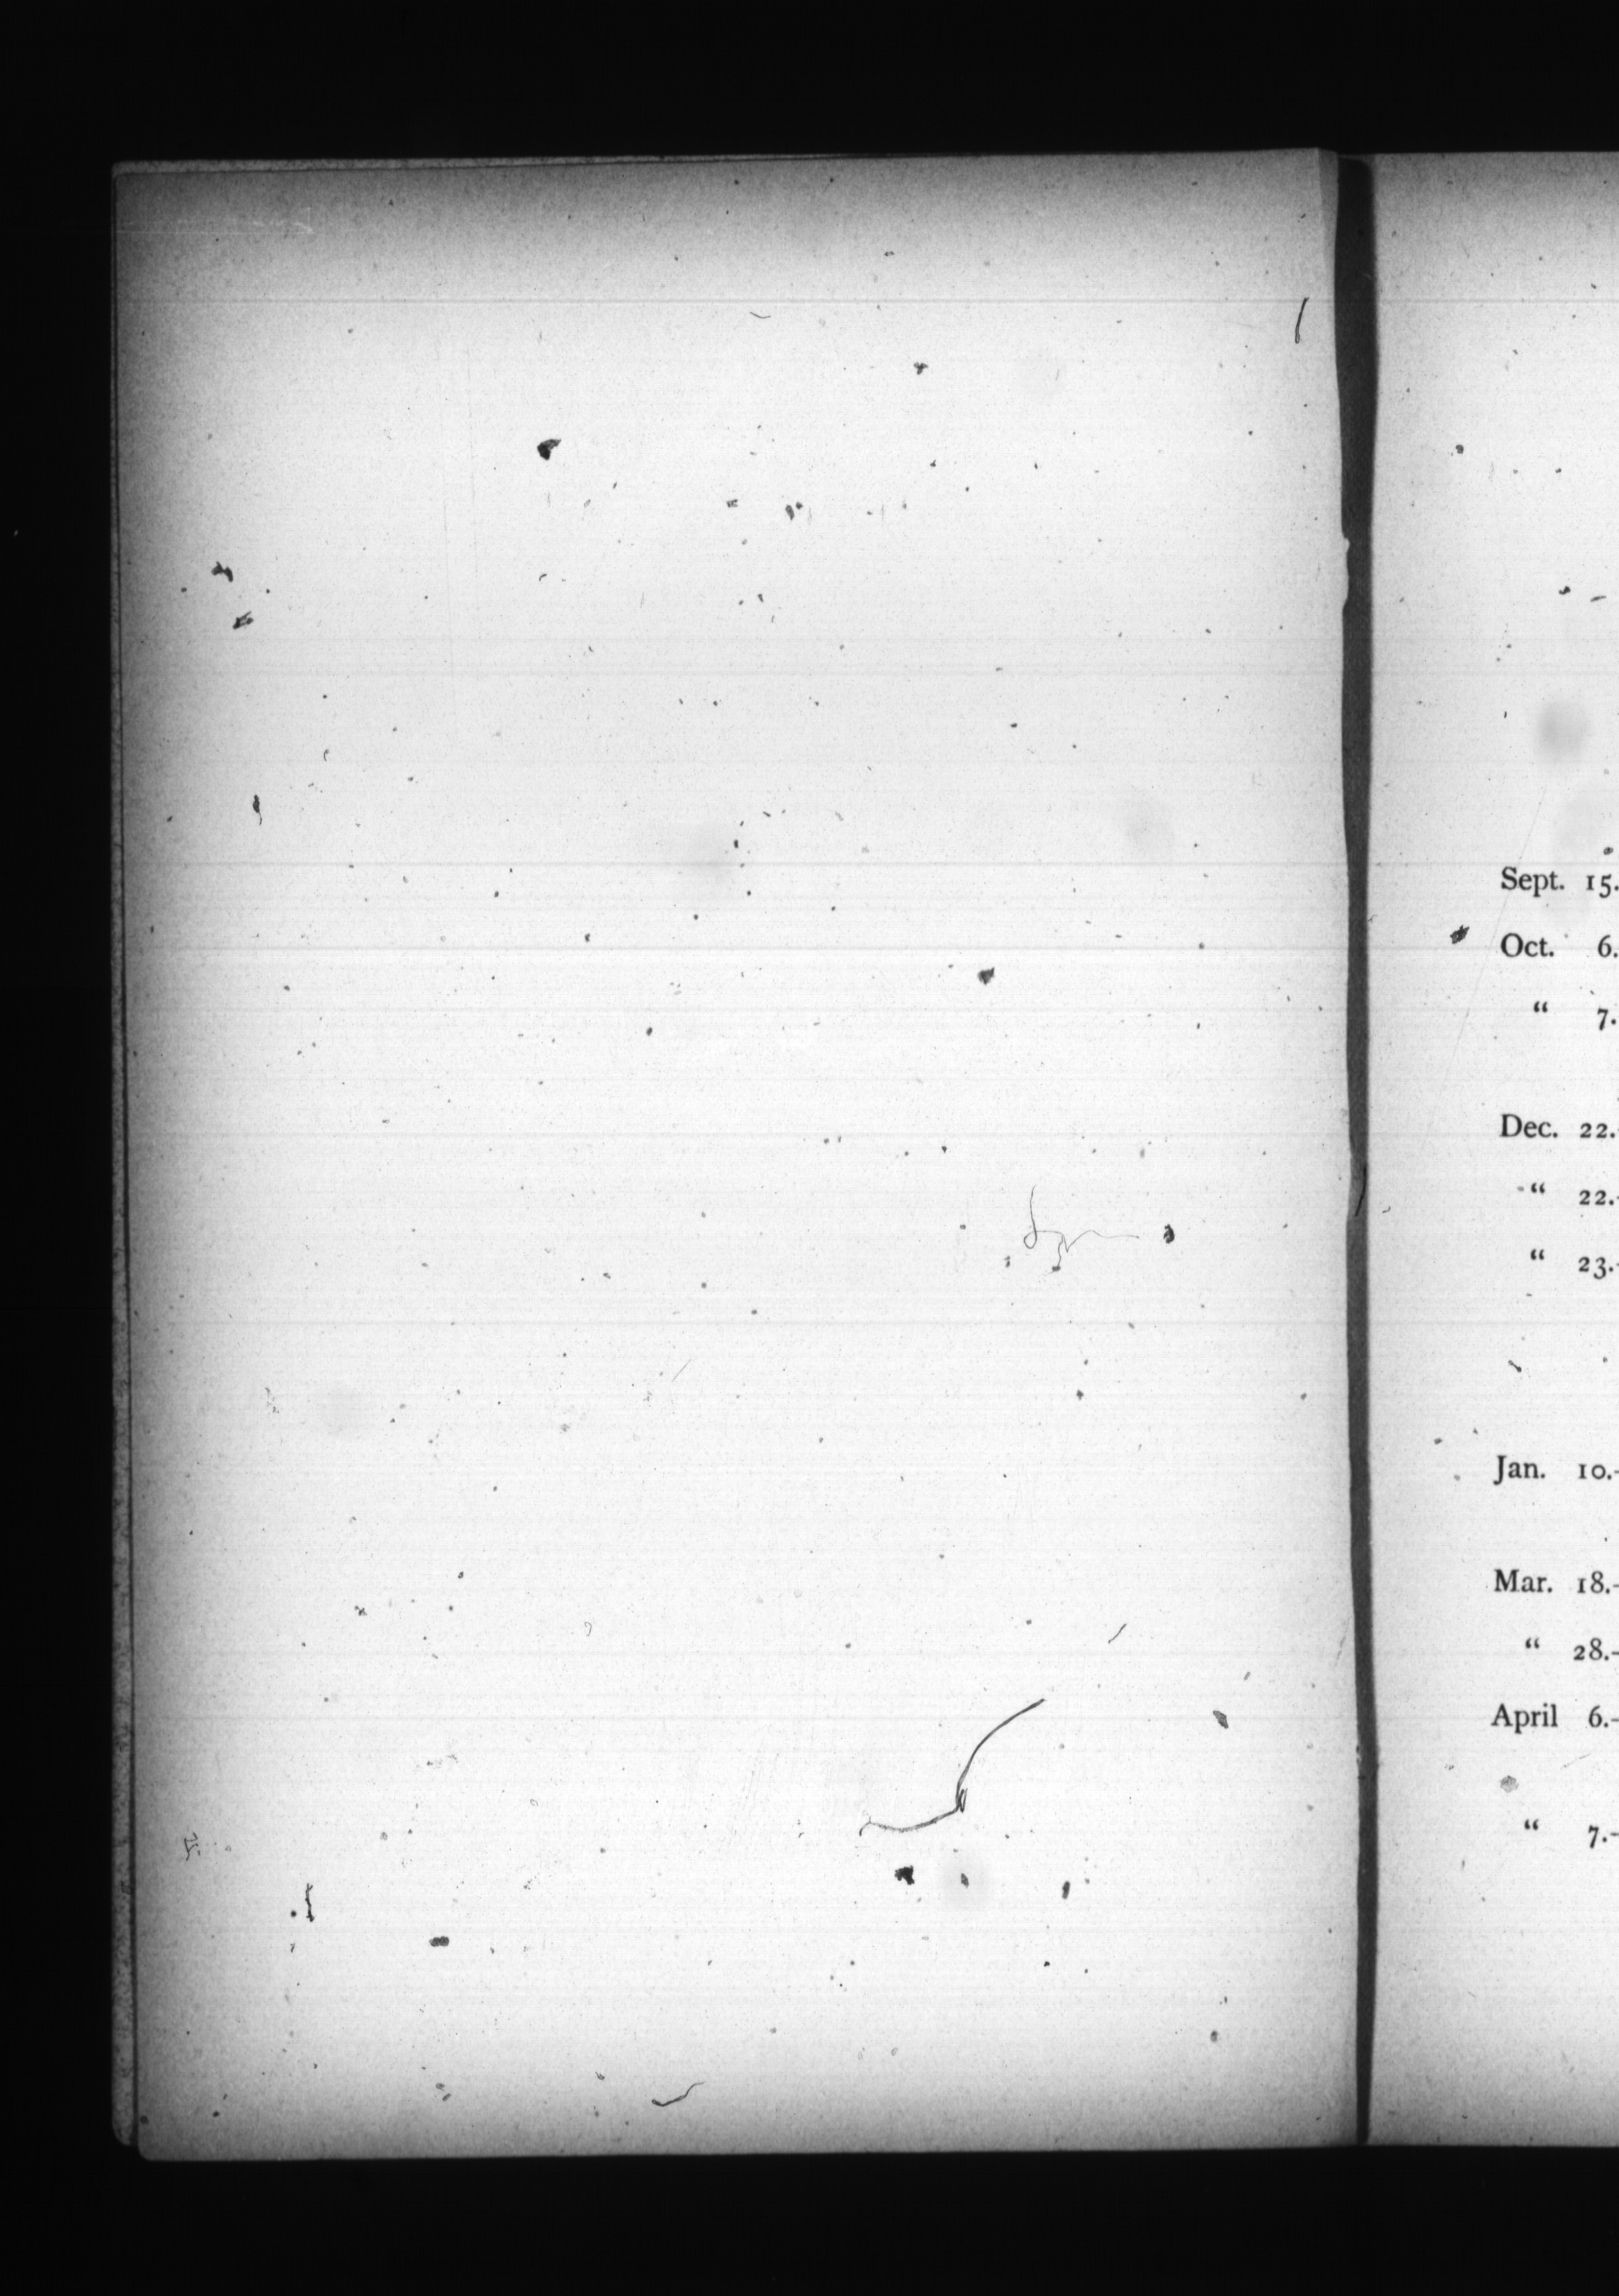 Sept. 15.
Oct. 6.
“ 7.
Dec. 22.
“ 22.
“ 23.-
Jan. 10.-
Mar. 18.-
“ 28.-
April 6.-
“ 7.-